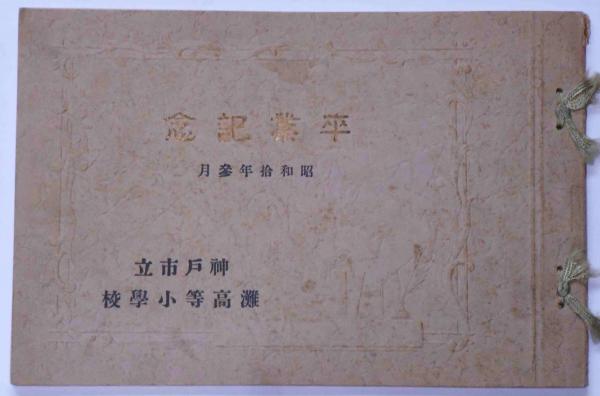 卒業記念
昭和拾年參月
神戶市立
灘高等小學校